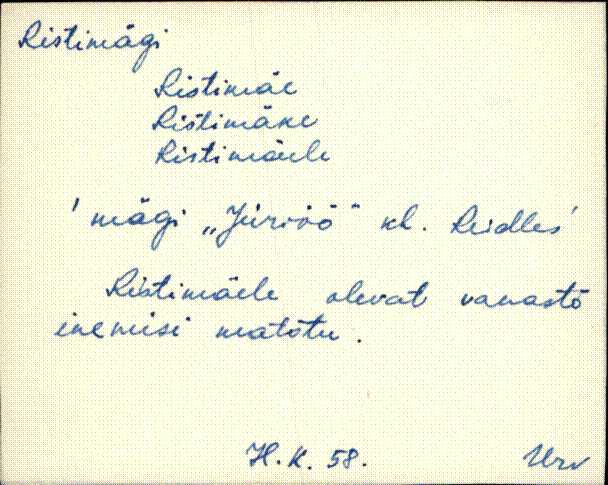 Ristimägi
Ristimäe
Ristimäke
Ristimäele
' mägi „Jüriöö" kl. Reidles'
Ristimäele olevat vanastõ
inemisi matõtu.
H.K. 58.
Urv